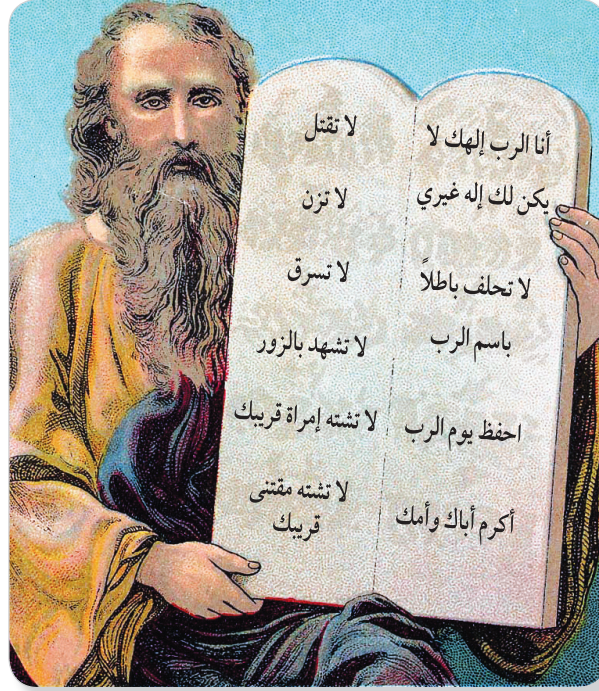 أنا الرب إلهك لا
يكن لك إله غيري
لا تحلف باطلاً
باسم الرب
احفظ يوم الرب
أكرم أباك وأمك
لا تقتل
لا تزن
لا تسرق
لا تشهد بالزور
لا تشته إمراة قريبك
لا تشته مقتنى
قريبك